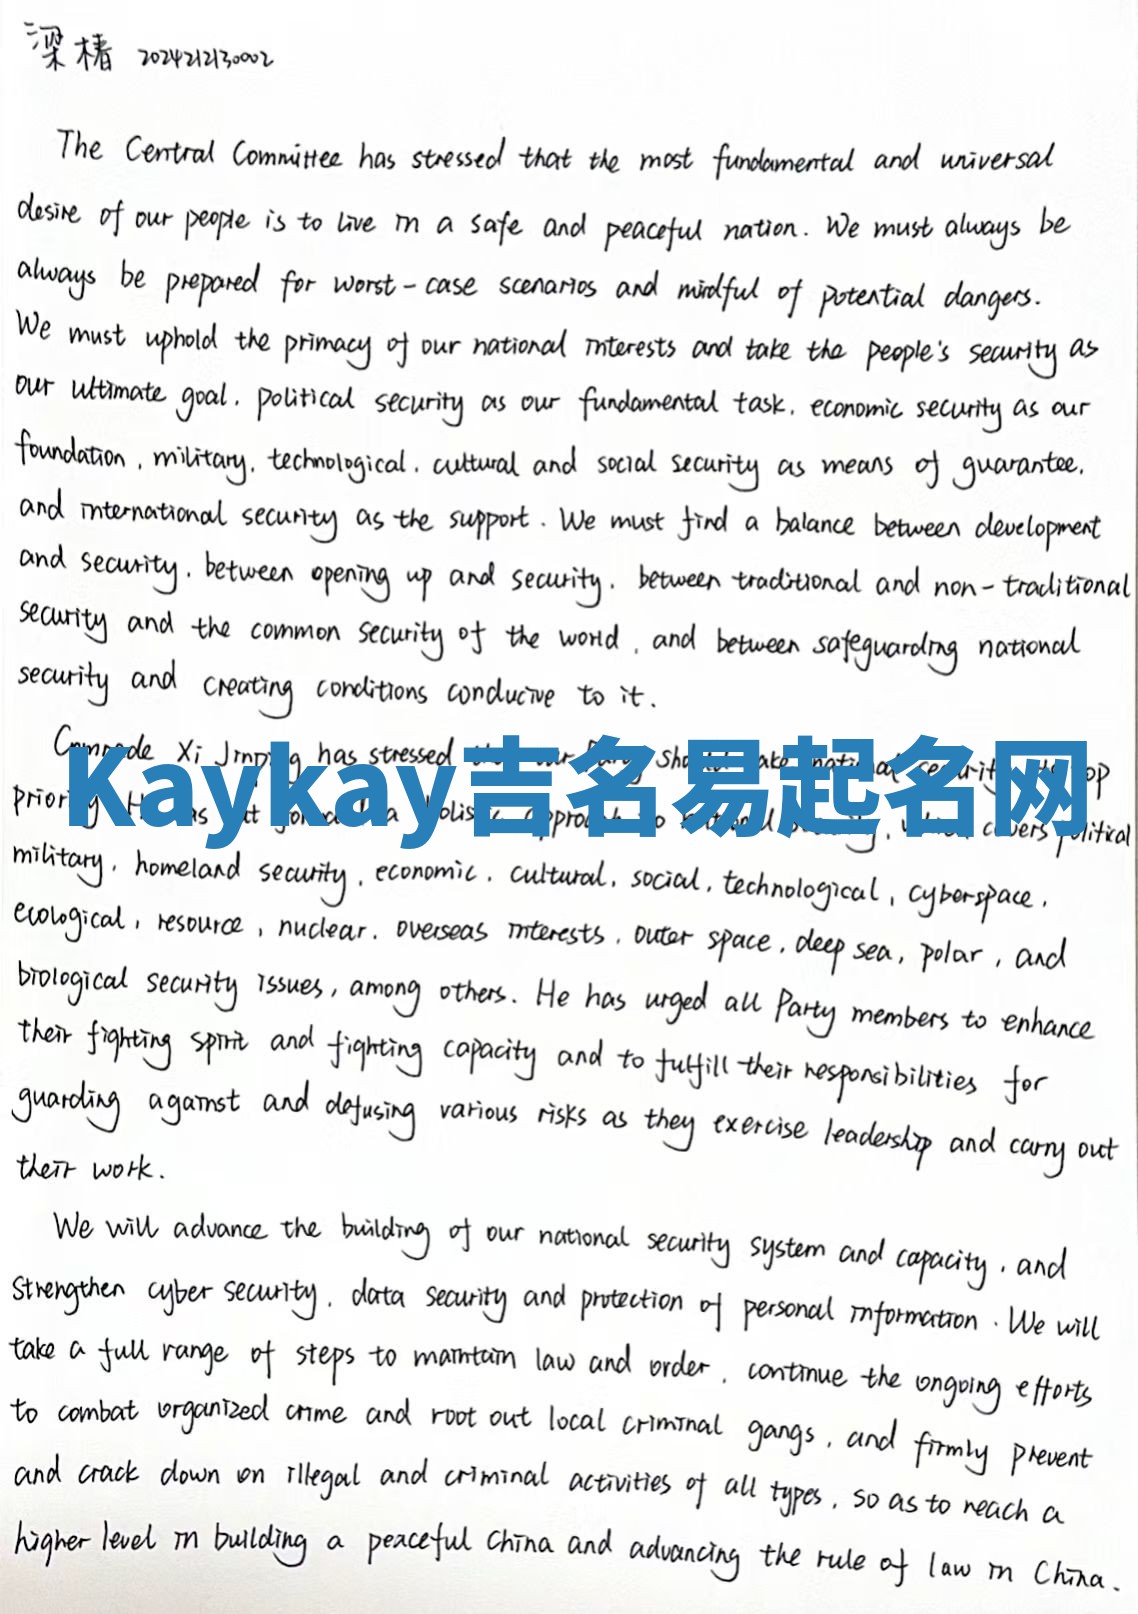 梁椿 2024212130002
The Central Committee has stressed that the most fundamental and universal
desire of our people is to live in a safe and peaceful nation. We must always be
always be prepared for worst-case scenarios and mindful of potential dangers.
We must uphold the primacy of our national interests and take the people's security as
our ultimate goal, political security as our fundamental task, economic security as our
foundation, military, technological, cultural and social security as means of guarantee,
and international security as the support. We must find a balance between development
and security, between opening up and security, between traditional and non-traditional
security and the common security of the world, and between safeguarding national
security and creating conditions conducive to it.
Comrade Xi Jinping has stressed
Kaykay吉名易起名网
priority covers political
military, homeland security, economic, cultural, social, technological, cyberspace,
ecological, resource, nuclear, overseas interests, outer space, deep sea, polar, and
biological security issues, among others. He has urged all Party members to enhance
their fighting spirit and fighting capacity and to fulfill their responsibilities for
guarding against and defusing various risks as they exercise leadership and carry out
their work.
We will advance the building of our national security system and capacity, and
strengthen cyber security, data security and protection of personal information. We will
take a full range of steps to maintain law and order, continue the ongoing efforts
to combat organized crime and root out local criminal gangs, and firmly prevent
and crack down on illegal and criminal activities of all types, so as to reach a
higher level in building a peaceful China and advancing the rule of law in China.